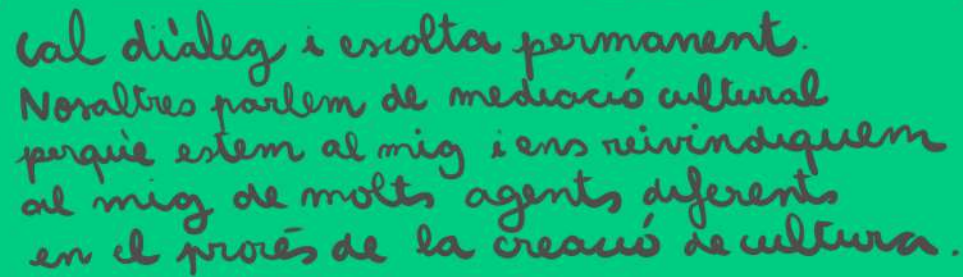 cal diàleg i escolta permanent.
Nosaltres parlem de mediació cultural
perquè estem al mig i ens reivindiquem
al mig de molts agents diferents
en el procés de la creació de cultura.